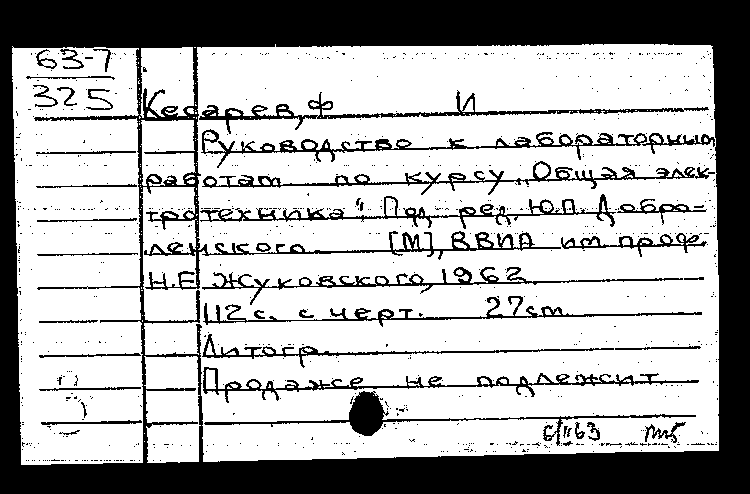 63-7
325
Кесарев, Ф И
Руководство к лабораторным
работам по курсу „Общая элек-
тротехника“. Под ред. Ю.П. Добро-
ленского [М], ВВИА им проф.
Н.Е. Жуковского, 1962.
112 с. с черт. 27 cm
Литогр.
Продаже не подлежит
6/II 63